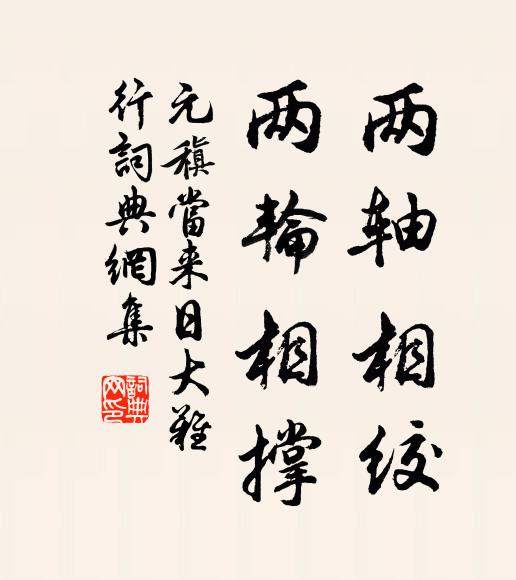 两轴相绞
两輪相撑
元稹當来日大難
行詞典網集
詞典
网印